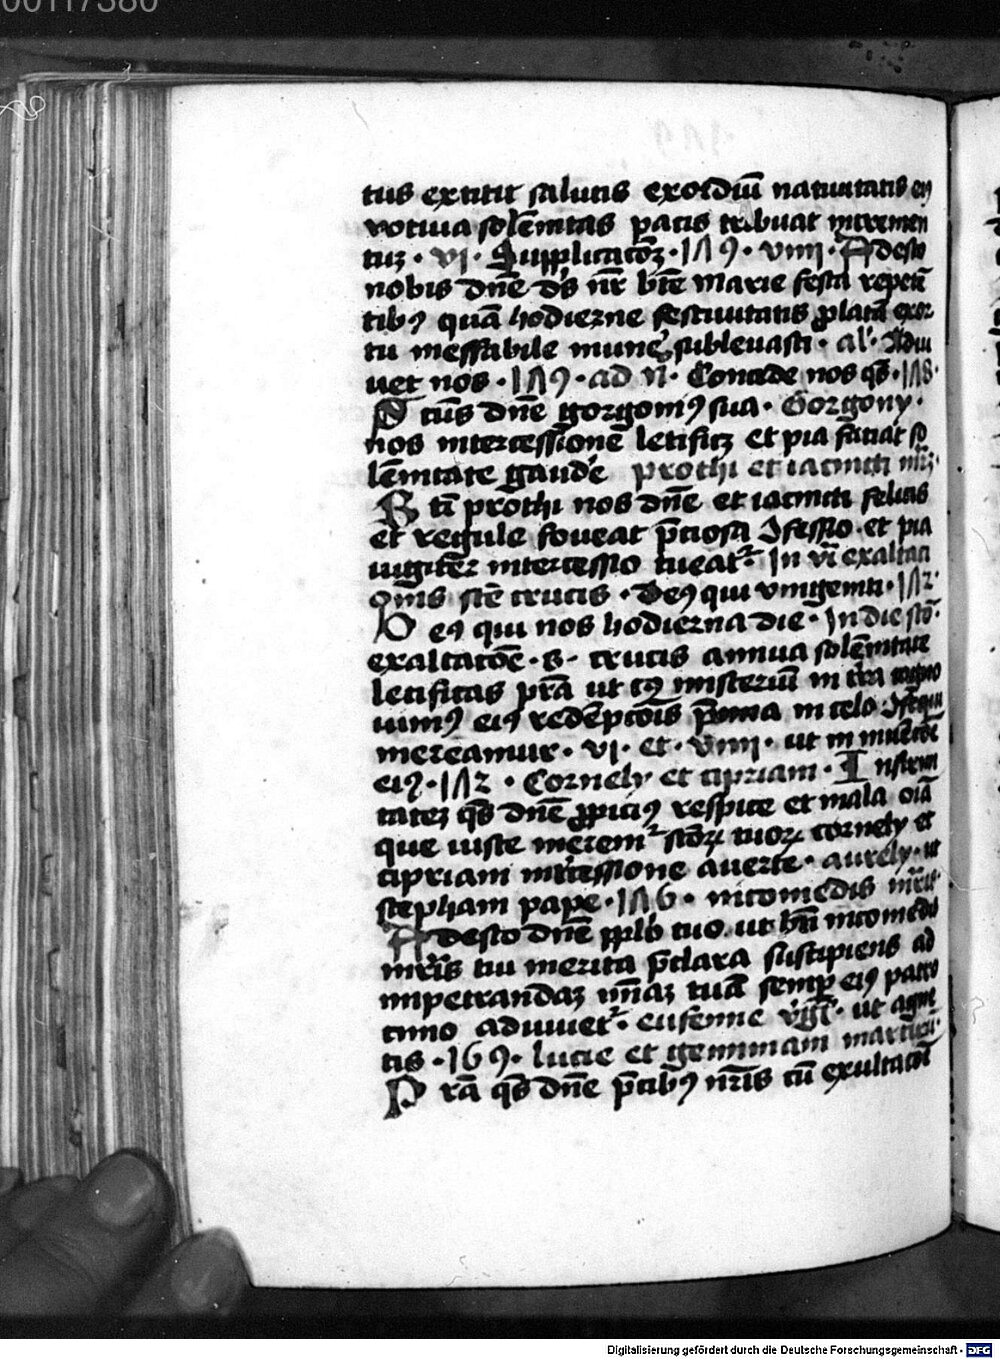 00117380
tus extitit salutis exordiū natiuitatis ei9
votiua solēnitas pacis tribuat incremen
tuꝫ · vi · Supplicatōꝫ · 1Λ9 · viiii · Adesto
nobis dn̄e ds̄ nr̄ btē marie festa repetē
tib9 quā hodierne festiuitatis ꝓlatā exor
tu ineffabile mune subleuasti · al' · Adiu
uet nos · 1Λ9 · ad · Concede nos qs̄ · 1Λ8 ·
S ctūs dn̄e gorgoni9 sua · Gorgony ·
nos intercessionē letificꝫ et pia faciat so
lēnitate gaudē prothi et iacincti mr̄ꝫ ·
B ti prothi nos dn̄e et iacincti felicis
et regule foueat p̄ciosa ꝯfessio · et pia
iugiter intercessio tueat᷑ · In vi exaltati
onis scē crucis · De9 qui vnigeniti · 1Λ2 ·
D e9 qui nos hodierna die · In die scō ·
exaltatōē · s · crucis annua solēnitate
letificas pr̄a ut c9 misteriū in tr̄a cogno
uim9 ei9 redēptōis p̄mia in celo ꝯsequi
mereamur · vi · et · viiii · ut in
ei9 · 1Λ2 · Cornely et cipriani · Infirmi
tateꝫ qs̄ dn̄e ꝓpici9 respice et mala oīa
que iuste merem᷑ scōꝝ tuoꝝ cornely et
cipriani intcessione auerte · aurely · ut
stephani pape · 1Λ6 · nicomedis mr̄is
Adesto dn̄e pplō tuo ut bt̄i nicomedis
mr̄is tui merita p̄clara suscipiens ad
impetrandaꝫ miaꝫ tuā semp ei9 patro
cinio adiuuet᷑ · eufemie vigl' · ut agne
tis · 169 · lucie et geminiani martirū ·
P rā qs̄ dn̄e p̄cib9 nr̄is cū exultacōē
Digitalisierung gefördert durch die Deutsche Forschungsgemeinschaft · DFG